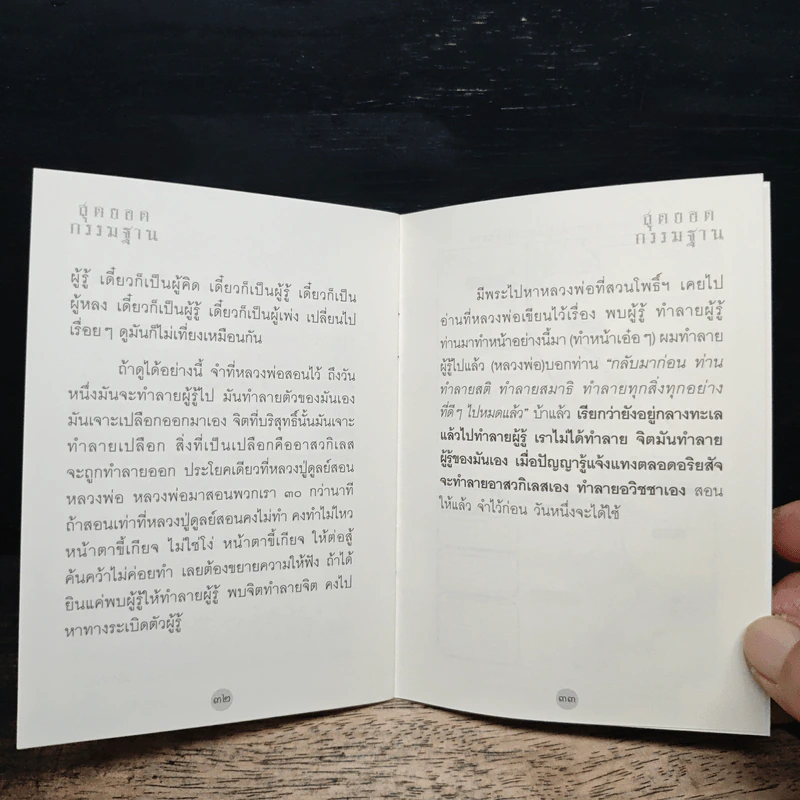 สุดยอด
กรรมฐาน
ผู้รู้ เดี๋ยวก็เป็นผู้คิด เดี๋ยวก็เป็นผู้รู้ เดี๋ยวก็เป็น
ผู้หลง เดี๋ยวก็เป็นผู้รู้ เดี๋ยวก็เป็นผู้เพ่ง เปลี่ยนไป
เรื่อยๆ ดูมันก็ไม่เที่ยงเหมือนกัน
ถ้าดูได้อย่างนี้ จำที่หลวงพ่อสอนไว้ ถึงวัน
หนึ่งมันจะทำลายผู้รู้ไป มันทำลายตัวของมันเอง
มันเจาะเปลือกออกมาเอง จิตที่บริสุทธิ์นั้นมันเจาะ
ทำลายเปลือก สิ่งที่เป็นเปลือกคืออาสวกิเลส
จะถูกทำลายออก ประโยคเดียวที่หลวงปู่ดูลย์สอน
หลวงพ่อ หลวงพ่อมาสอนพวกเรา ๓๐ กว่านาที
ถ้าสอนเท่าที่หลวงปู่ดูลย์สอนคงไม่ทำ คงทำไม่ไหว
หน้าตาขี้เกียจ ไม่ใช่โง่ หน้าตาขี้เกียจ ให้ต่อสู้
ค้นคว้าไม่ค่อยทำ เลยต้องขยายความให้ฟัง ถ้าได้
ยินแค่พบผู้รู้ให้ทำลายผู้รู้ พบจิตทำลายจิต คงไป
หาทางระเบิดตัวผู้รู้
๓๒
สุดยอด
กรรมฐาน
มีพระไปหาหลวงพ่อที่สวนโพธิ์ฯ เคยไป
อ่านที่หลวงพ่อเขียนไว้เรื่อง พบผู้รู้ ทำลายผู้รู้
ท่านมาทำหน้าอย่างนี้มา (ทำหน้าเอ๋อๆ) ผมทำลาย
ผู้รู้ไปแล้ว (หลวงพ่อ)บอกท่าน “กลับมาก่อน ท่าน
ทำลายสติ ทำลายสมาธิ ทำลายทุกสิ่งทุกอย่าง
ที่ดีๆ ไปหมดแล้ว” บ้าแล้ว เรียกว่ายังอยู่กลางทะเล
แล้วไปทำลายผู้รู้ เราไม่ได้ทำลาย จิตมันทำลาย
ผู้รู้ของมันเอง เมื่อปัญญารู้แจ้งแทงตลอดอริยสัจ
จะทำลายอาสวกิเลสเอง ทำลายอวิชชาเอง สอน
ให้แล้ว จำไว้ก่อน วันหนึ่งจะได้ใช้
๓๓